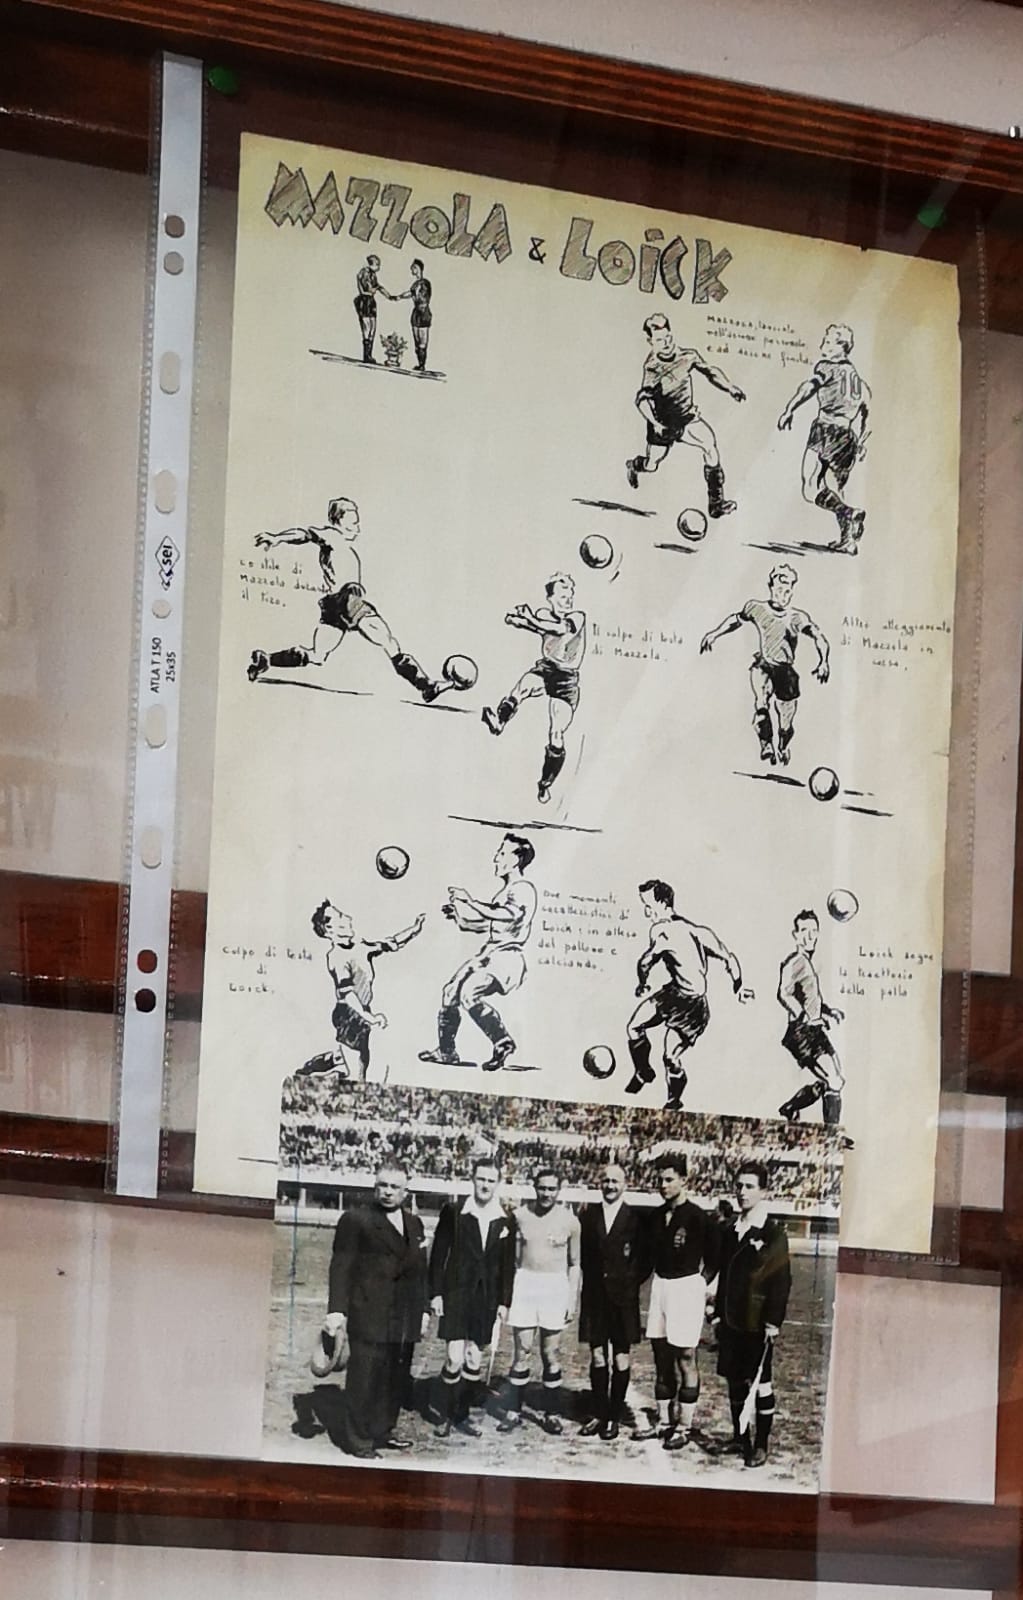 MAZZOLA & LOICK
MAZZOLA, lanciato
nell'azione personale,
e ad azione finita.
10
Lo stile di
Mazzola durante
il tiro.
Il colpo di testa
di Mazzola.
Altro atteggiamento
di Mazzola in
corsa.
Colpo di testa
di
Loick.
Due momenti
caratteristici di
Loick: in attesa
del pallone e
calciando.
Loick segue
la traiettoria
della palla
sei
ATLA T 150
25x35